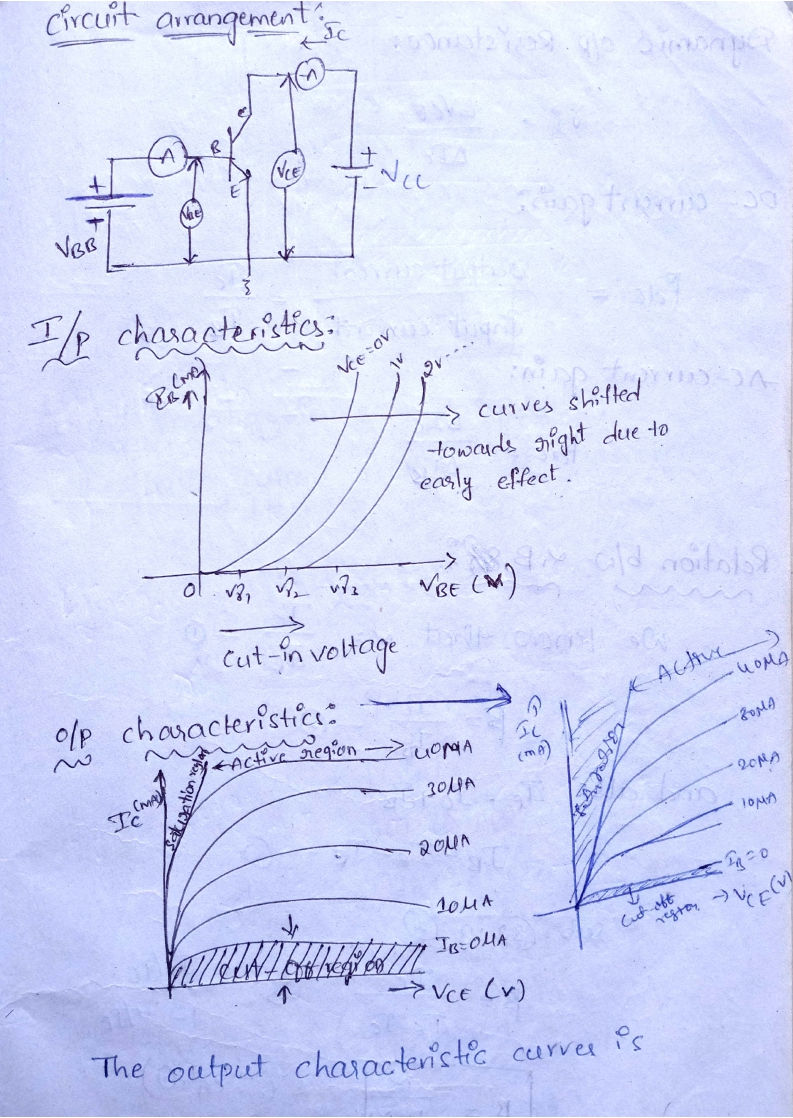 Circuit arrangement:
← Ic
A
C
B
A
E
VCE
VBE
+
+
VBB
+
-
VCC
I/p characteristics:
IB (μA)
VCE=0V
1V
2V ....
curves shifted
towards right due to
early effect.
0
Vr1
Vr2
Vr3
VBE (V)
cut-in voltage
O/p characteristics:
Saturation region
← Active region →
40μA
Ic (mA)
30μA
20μA
10μA
IB=0μA
cut-off region
→ VCE (V)
← Active
40μA
Ic
(mA)
Saturation
30μA
20μA
10μA
IB=0
cut-off
region
→ VCE (V)
The output characteristic curves is